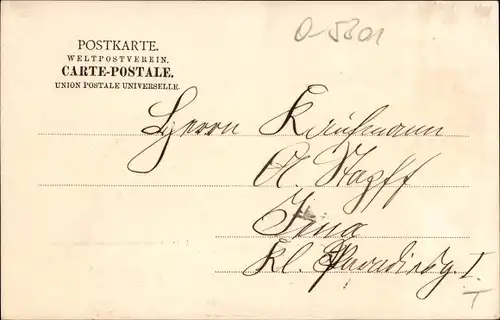 O-5301
POSTKARTE.
WELTPOSTVEREIN.
CARTE-POSTALE.
UNION POSTALE UNIVERSELLE.
Herrn Kaufmann
A. Stapff
Jena
Kl. Paradiesg. I.
T